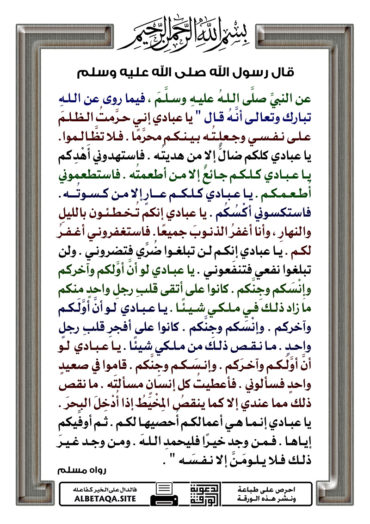 بسم الله الرحمن الرحيم
قال رسول الله صلى الله عليه وسلم
عن النبيِّ صلَّى اللهُ عليهِ وسلَّمَ ، فيما روى عن اللهِ
تبارك وتعالى أنَّهُ قال " يا عبادي إني حرَّمتُ الظلمَ
على نفسي وجعلتُه بينكم محرَّمًا . فلا تظَّالموا.
يا عبادي كلكم ضالٌّ إلا من هديتُه . فاستهدوني أَهْدِكم
يا عبادي كلكم جائعٌ إلا من أطعمتُه . فاستطعموني
أُطعمْكم . يا عبادي كلكم عارٍ إلا من كسوتُه .
فاستكسوني أكسُكُم . يا عبادي إنكم تُخطئون بالليلِ
والنهارِ ، وأنا أغفرُ الذنوبَ جميعًا. فاستغفروني أغفرْ
لكم . يا عبادي إنكم لن تبلغوا ضُرِّي فتضروني . ولن
تبلغوا نفعي فتنفعوني . يا عبادي لو أنَّ أوَّلكم وآخركم
وإنْسَكم وجِنَّكم . كانوا على أتقى قلبِ رجلٍ واحدٍ منكم
ما زاد ذلك في ملكي شيئًا . يا عبادي لو أنَّ أوَّلَكم
وآخركم . وإنْسَكم وجِنَّكم . كانوا على أفجرِ قلبِ رجلٍ
واحدٍ . ما نقص ذلك من ملكي شيئًا . يا عبادي لو
أنَّ أوَّلَكم وآخرَكم . وإنسَكم وجِنَّكم . قاموا في صعيدٍ
واحدٍ فسألوني . فأعطيتُ كلَّ إنسانٍ مسألتَه . ما نقص
ذلك مما عندي إلا كما ينقصُ المِخْيَطُ إذا أُدْخِلَ البحرَ .
يا عبادي إنما هي أعمالكم أُحصيها لكم . ثم أوفِّيكم
إياها . فمن وجد خيرًا فليحمدِ اللهَ . ومن وجد غيرَ
ذلك فلا يلومَنَّ إلا نفسَه " .
رواه مسلم
احرص على طباعة
ونشر هذه الورقة
لدعوية
الورقة
فالدال على الخير كفاعله
ALBETAQA.SITE